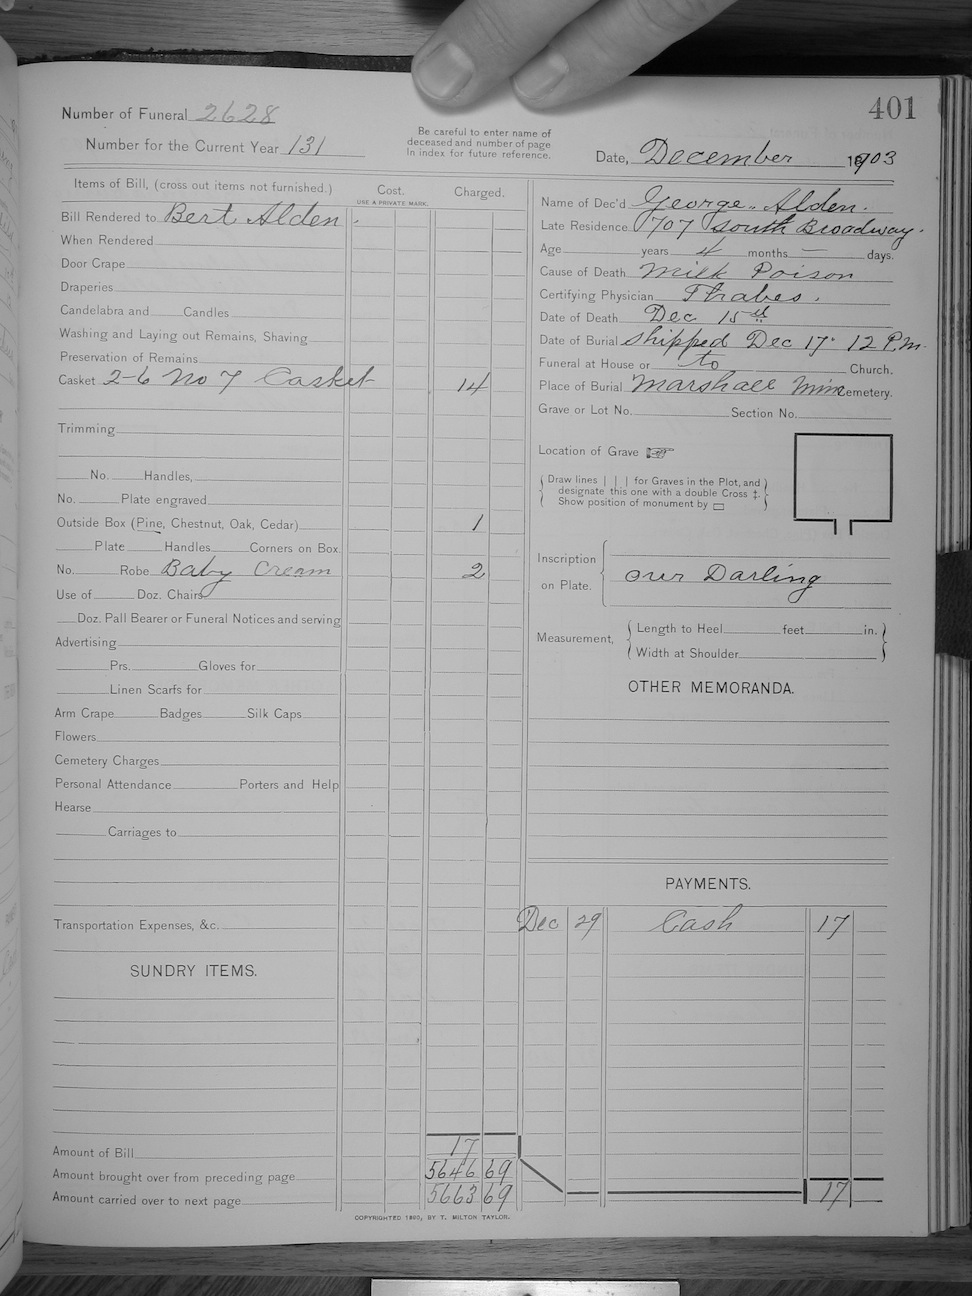 401
Number of Funeral 2628
Number for the Current Year 131
Be careful to enter name of
deceased and number of page
in index for future reference.
Date, December 1903
Items of Bill, (cross out items not furnished.)
Cost.
USE A PRIVATE MARK.
Charged.
Bill Rendered to Bert Alden.
When Rendered
Door Crape
Draperies
Candelabra and Candles
Washing and Laying out Remains, Shaving
Preservation of Remains
Casket 2-6 No 7 Casket 14
Trimming
No. Handles,
No. Plate engraved
Outside Box (Pine, Chestnut, Oak, Cedar) 1
Plate Handles Corners on Box
No. Robe Baby Cream 2
Use of Doz. Chairs
Doz. Pall Bearer or Funeral Notices and serving
Advertising
Prs. Gloves for
Linen Scarfs for
Arm Crape Badges Silk Caps
Flowers
Cemetery Charges
Personal Attendance Porters and Help
Hearse
Carriages to
Transportation Expenses, &c.
SUNDRY ITEMS.
Amount of Bill 17
Amount brought over from preceding page 5646 69
Amount carried over to next page 5663 69
Name of Dec'd George Alden.
Late Residence 1707 South Broadway.
Age years 4 months — days.
Cause of Death Milk Poison
Certifying Physician Thabes.
Date of Death Dec 15th
Date of Burial Shipped Dec 17. 12 P.m.
Funeral at House or to Church.
Place of Burial Marshall Minn Cemetery.
Grave or Lot No. Section No.
Location of Grave
Draw lines | | | for Graves in the Plot, and
designate this one with a double Cross ‡.
Show position of monument by ▭
Inscription
on Plate. our Darling
Measurement, Length to Heel feet in.
Width at Shoulder
OTHER MEMORANDA.
PAYMENTS.
Dec 29 Cash 17
17
COPYRIGHTED 1890, BY T. MILTON TAYLOR.